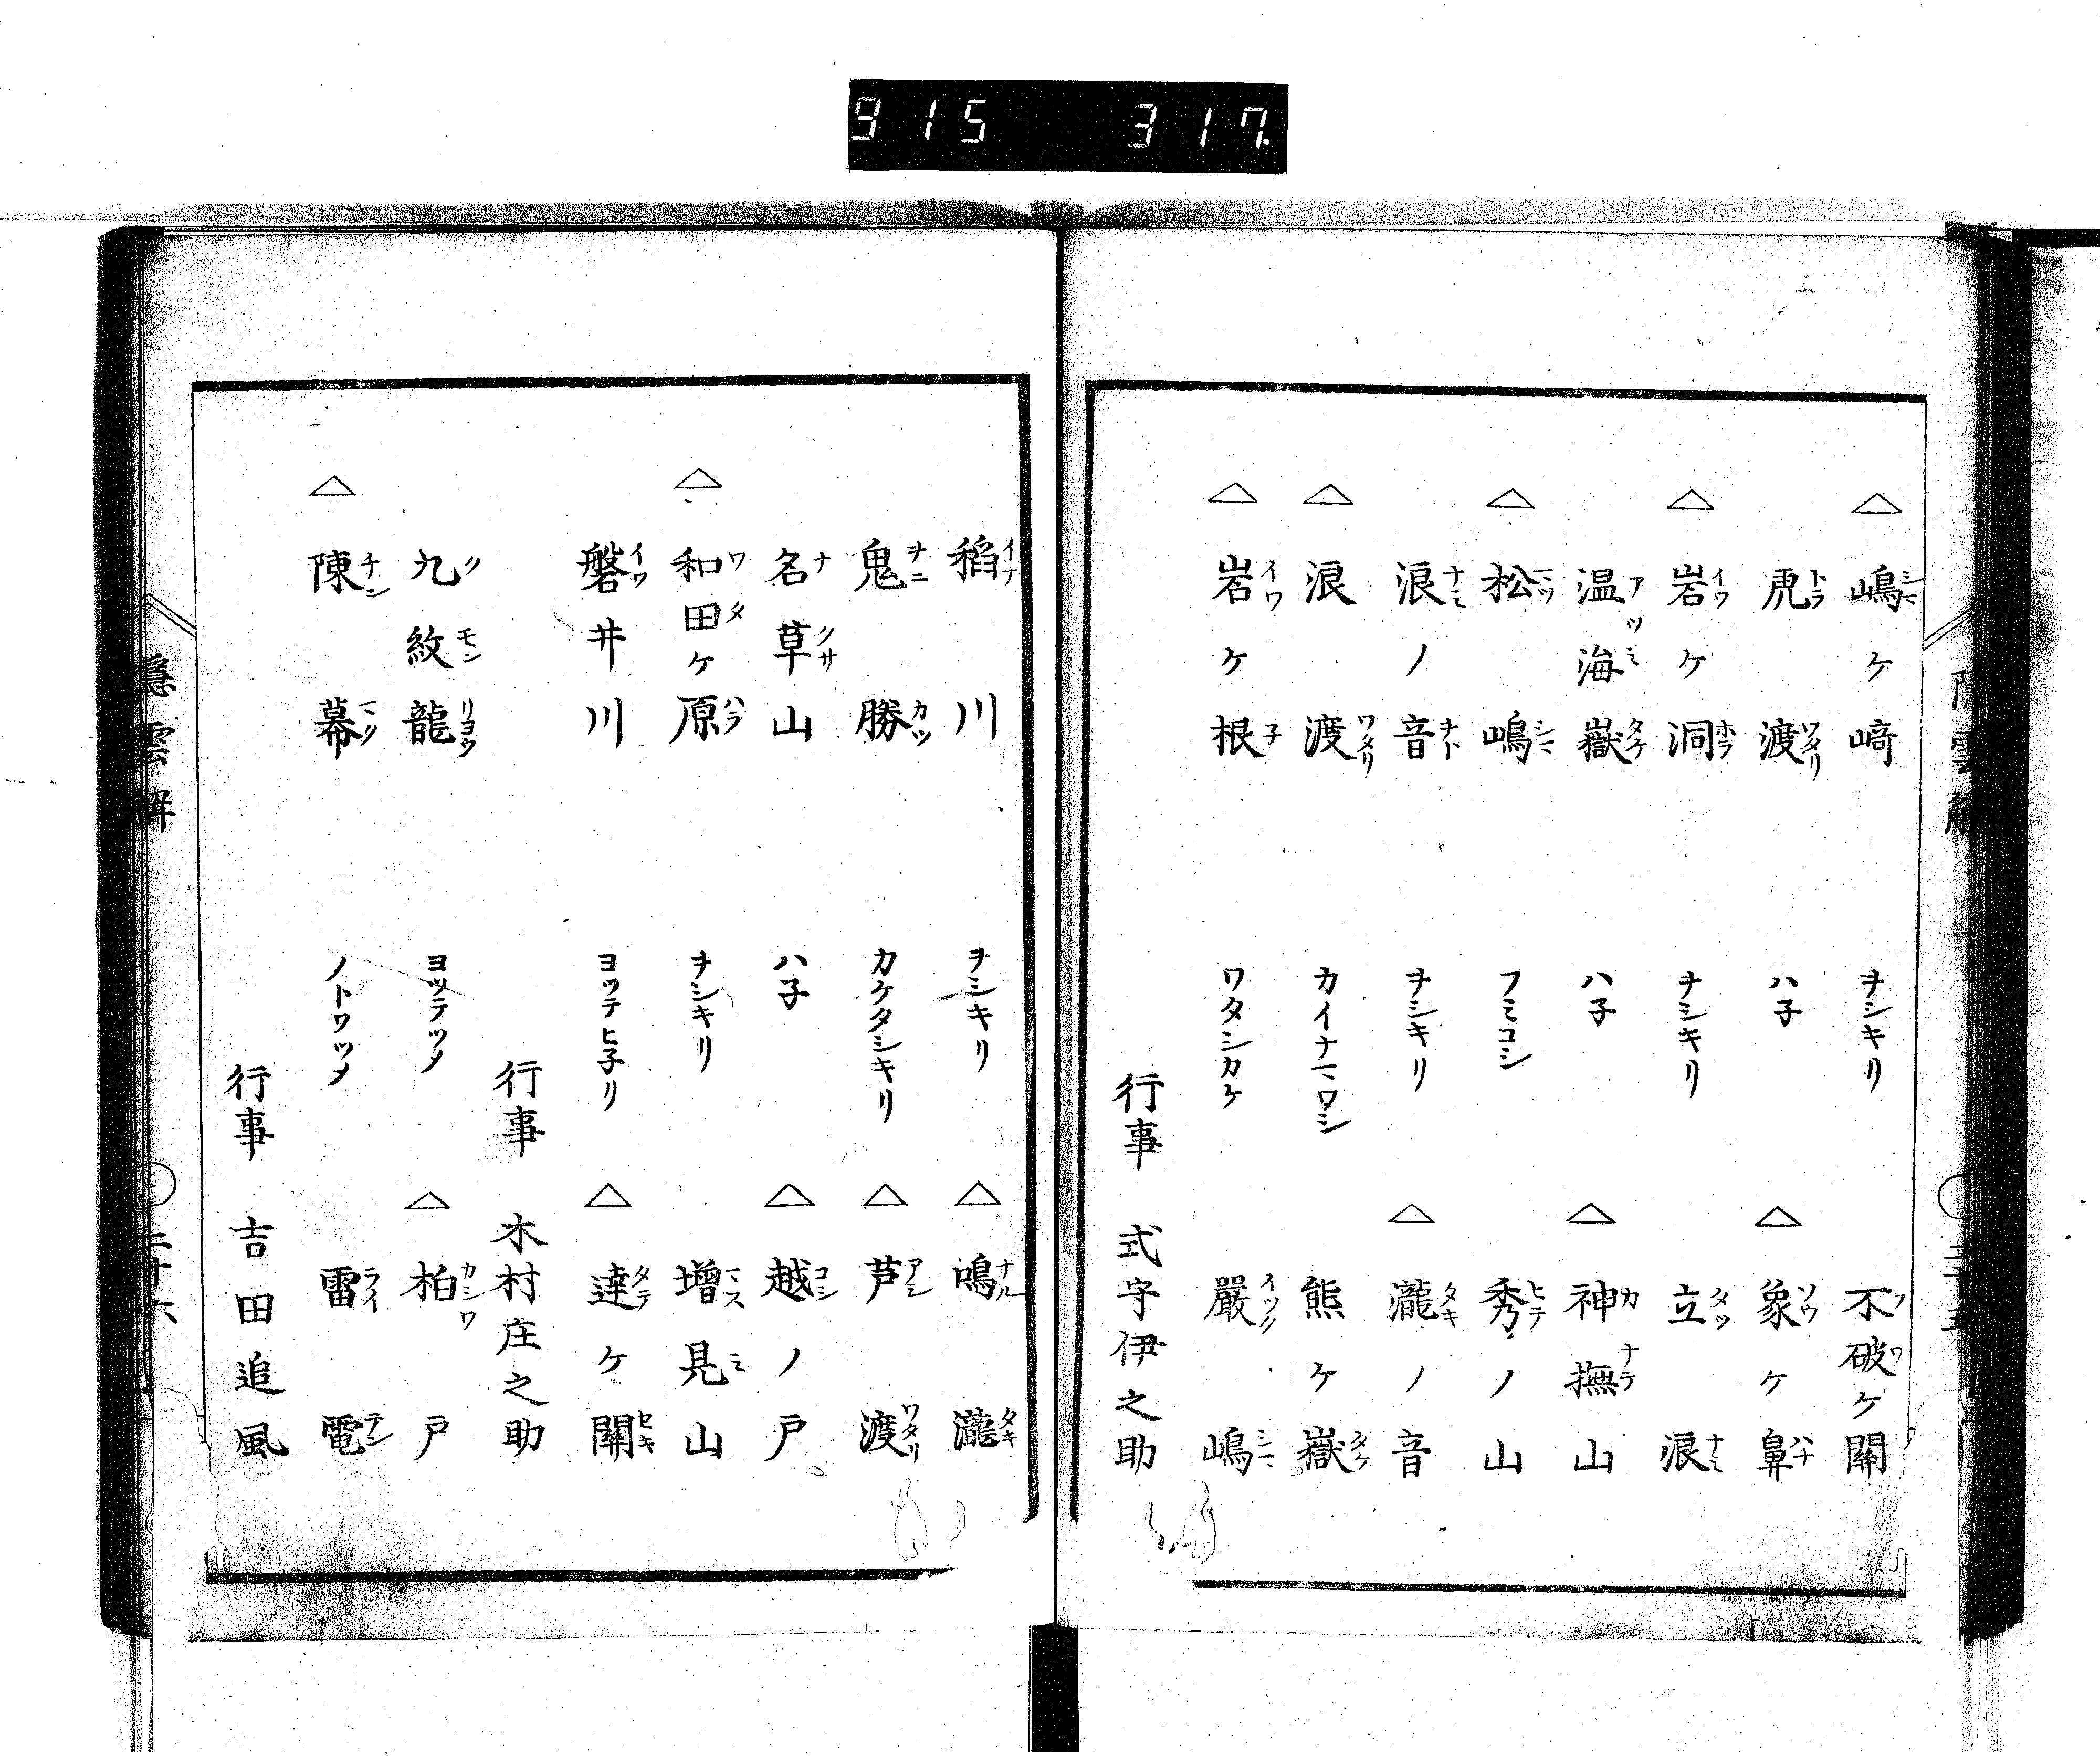 915 317
△嶋ヶ﨑 ヲシキリ 不破ケ關
虎渡 ハ子 △象ケ鼻
△岩ケ洞 ヲシキリ 立浪
温海嶽 ハ子 △神撫山
△松嶋 フミコシ 秀ノ山
浪ノ音 ヲシキリ △瀧ノ音
△浪渡 カイナマワシ 熊ケ嶽
△岩ケ根 ワタシカケ 嚴嶋
行事 式守伊之助
稻川 ヲシキリ △鳴瀧
鬼勝 カケタシキリ △芦渡
名草山 ハ子 △越ノ戸
△和田ケ原 ヲシキリ 増見山
磐井川 ヨツテヒ子リ △達ケ關
行事 木村庄之助
九紋龍 ヨツテツメ △柏戸
△陳幕 ノトワツメ 雷電
行事 吉田追風
二十六